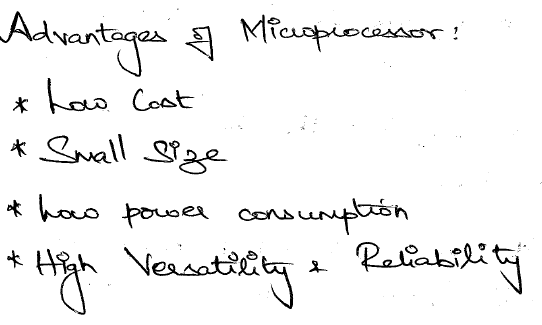 Advantages of Microprocessor :
* Low Cost
* Small Size
* Low power consumption
* High Versatility & Reliability